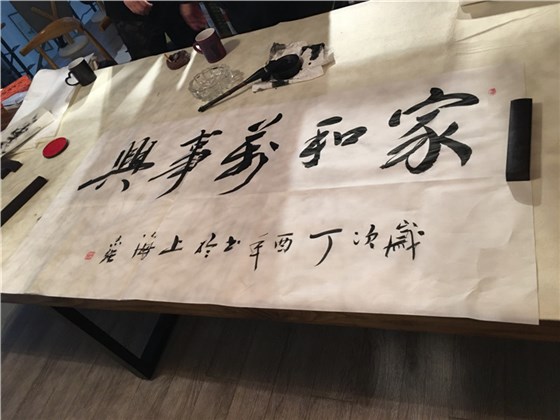 家和萬事興
歲次丁酉年書於上海